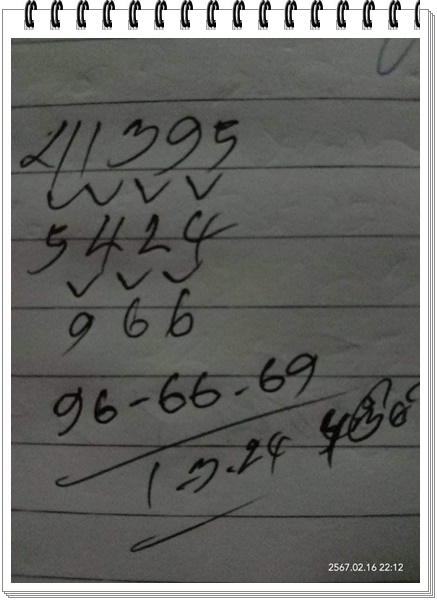 41395
5424
966
96-66-69
1-3-24
2567.02.16 22:12